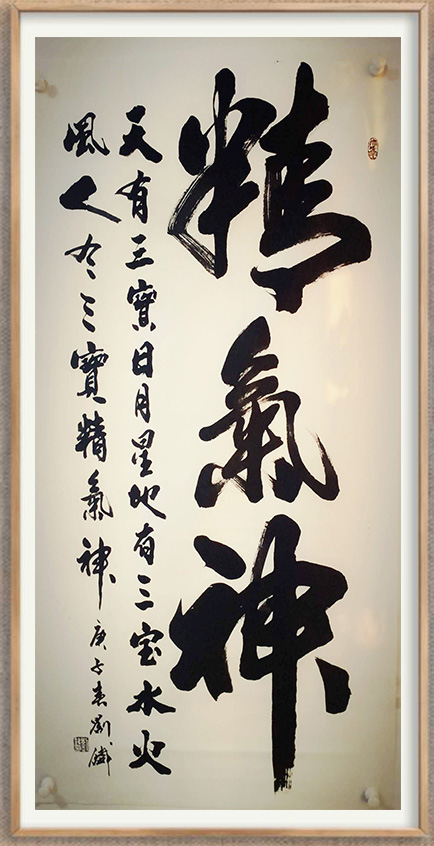 精氣神
天有三寶日月星地有三宝水火
風人有三寶精氣神
庚子春劉